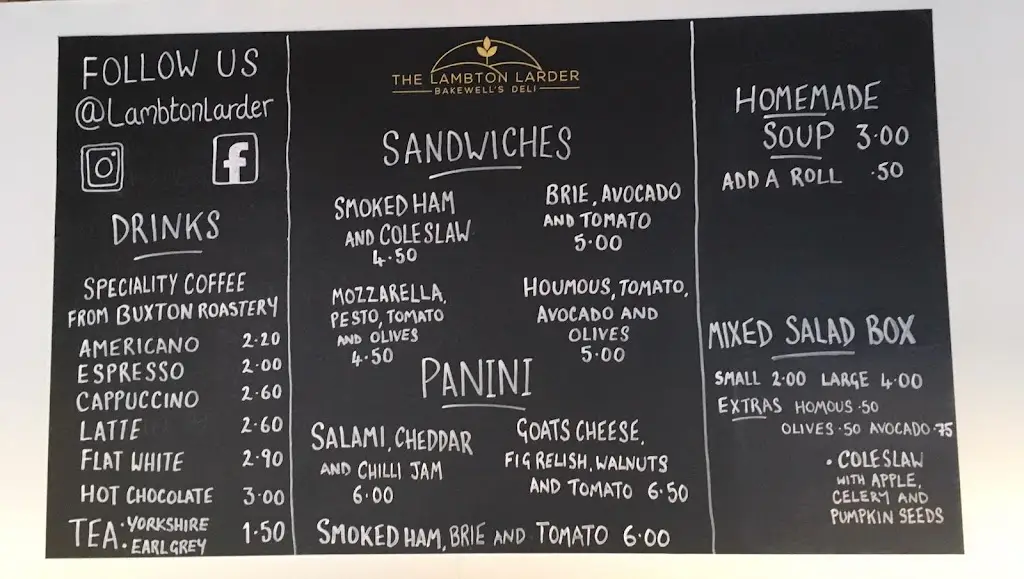 FOLLOW US
@Lambtonlarder
DRINKS
SPECIALITY COFFEE
FROM BUXTON ROASTERY
AMERICANO 2·20
ESPRESSO 2·00
CAPPUCCINO 2·60
LATTE 2·60
FLAT WHITE 2·90
HOT CHOCOLATE 3·00
TEA · YORKSHIRE
· EARL GREY 1·50
THE LAMBTON LARDER
BAKEWELL'S DELI
SANDWICHES
SMOKED HAM
AND COLESLAW
4·50
BRIE, AVOCADO
AND TOMATO
5·00
MOZZARELLA,
PESTO, TOMATO
AND OLIVES
4·50
HOUMOUS, TOMATO,
AVOCADO AND
OLIVES
5·00
PANINI
SALAMI, CHEDDAR
AND CHILLI JAM
6·00
GOATS CHEESE,
FIG RELISH, WALNUTS
AND TOMATO 6·50
SMOKED HAM, BRIE AND TOMATO 6·00
HOMEMADE
SOUP 3·00
ADD A ROLL ·50
MIXED SALAD BOX
SMALL 2·00 LARGE 4·00
EXTRAS HOMOUS ·50
OLIVES ·50 AVOCADO ·75
· COLESLAW
WITH APPLE,
CELERY AND
PUMPKIN SEEDS